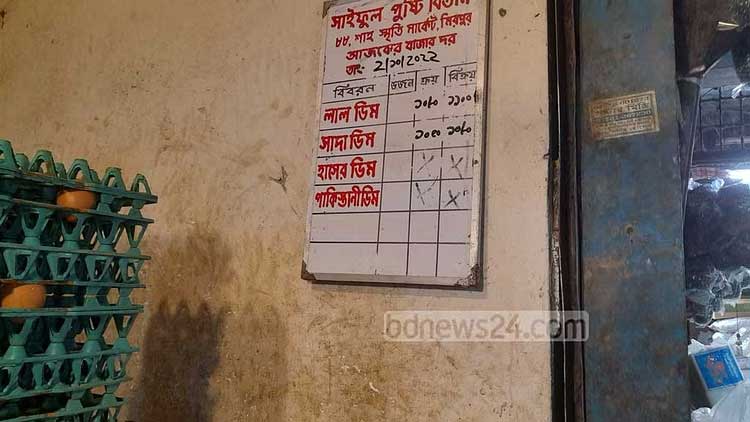 সাইফুল পুষ্টি বিতান
৮৮, শাহ্ স্মৃতি মার্কেট, মিরপুর
আজকের বাজার দর
তাং- 2/১০/২০২২
বিবরন ডজন ক্রয় বিক্রয়
লাল ডিম
সাদা ডিম
হাসের ডিম X X
পাকিস্তানীডিম X X
bdnews24.com